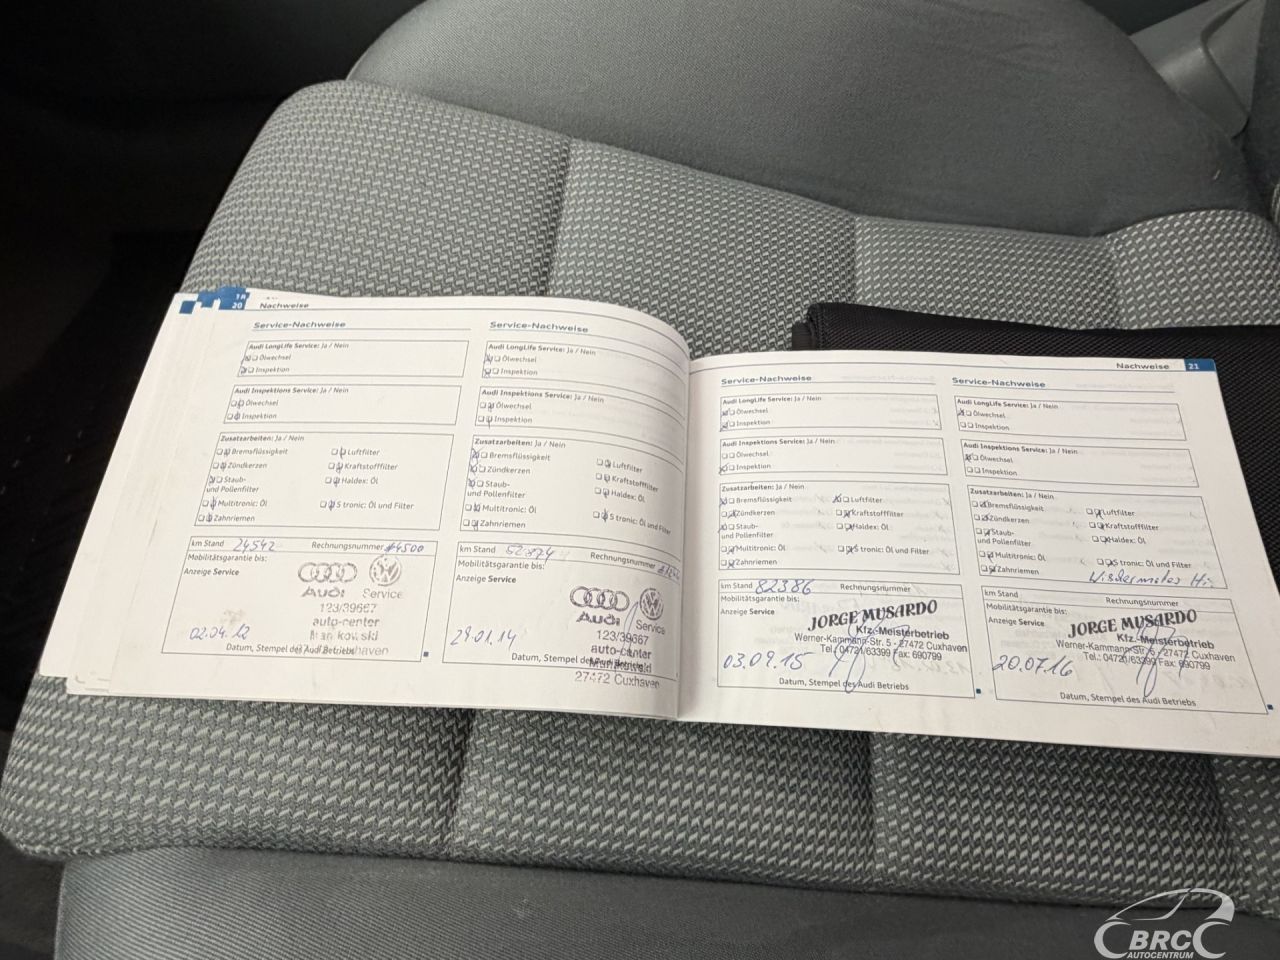 18
20
Nachweise
Service-Nachweise
Audi LongLife Service: Ja / Nein
Ölwechsel
Inspektion
Audi Inspektions Service: Ja / Nein
Ölwechsel
Inspektion
Zusatzarbeiten: Ja / Nein
Bremsflüssigkeit
Luftfilter
Zündkerzen
Kraftstofffilter
Staub-
und Pollenfilter
Haldex: Öl
Multitronic: Öl
S tronic: Öl und Filter
Zahnriemen
km Stand 24542 Rechnungsnummer
Mobilitätsgarantie bis:
Anzeige Service
Audi Service
123/39667
auto-center
02.04.12
Datum, Stempel des Audi Betriebs
Service-Nachweise
Audi LongLife Service: Ja / Nein
Ölwechsel
Inspektion
Audi Inspektions Service: Ja / Nein
Ölwechsel
Inspektion
Zusatzarbeiten: Ja / Nein
Bremsflüssigkeit
Luftfilter
Zündkerzen
Kraftstofffilter
Staub-
und Pollenfilter
Haldex: Öl
Multitronic: Öl
S tronic: Öl und Filter
Zahnriemen
km Stand Rechnungsnummer
Mobilitätsgarantie bis:
Anzeige Service
Audi Service
123/39667
auto-center
27472 Cuxhaven
29.01.14
Datum, Stempel des Audi Betriebs
Nachweise 21
Service-Nachweise
Audi LongLife Service: Ja / Nein
Ölwechsel
Inspektion
Audi Inspektions Service: Ja / Nein
Ölwechsel
Inspektion
Zusatzarbeiten: Ja / Nein
Bremsflüssigkeit
Luftfilter
Zündkerzen
Kraftstofffilter
Staub-
und Pollenfilter
Haldex: Öl
Multitronic: Öl
S tronic: Öl und Filter
Zahnriemen
km Stand 82386 Rechnungsnummer
Mobilitätsgarantie bis:
Anzeige Service
JORGE MUSARDO
Kfz.-Meisterbetrieb
Werner-Kammann-Str. 5 - 27472 Cuxhaven
Tel.: 04721/63399 Fax: 690799
03.09.15
Datum, Stempel des Audi Betriebs
Service-Nachweise
Audi LongLife Service: Ja / Nein
Ölwechsel
Inspektion
Audi Inspektions Service: Ja / Nein
Ölwechsel
Inspektion
Zusatzarbeiten: Ja / Nein
Bremsflüssigkeit
Luftfilter
Zündkerzen
Kraftstofffilter
Staub-
und Pollenfilter
Haldex: Öl
Multitronic: Öl
S tronic: Öl und Filter
Zahnriemen
km Stand Rechnungsnummer
Mobilitätsgarantie bis:
Anzeige Service
JORGE MUSARDO
Kfz.-Meisterbetrieb
Werner-Kammann-Str. 5 - 27472 Cuxhaven
Tel.: 04721/63399 Fax: 690799
20.07.16
Datum, Stempel des Audi Betriebs
BRC
AUTOCENTRUM